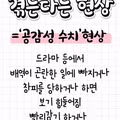 겪는다는 현상
='공감성 수치' 현상
드라마 등에서
배역이 곤란한 일에 빠지거나
창피를 당하거나 하면
보기 힘들어짐
빨리감기 하거나